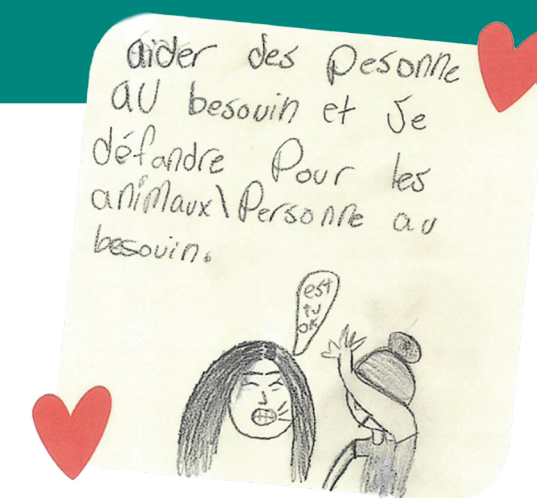 aider des pesonne
au besouin et je
défandre Pour les
animaux\Personne au
besouin.
est
tu
ok